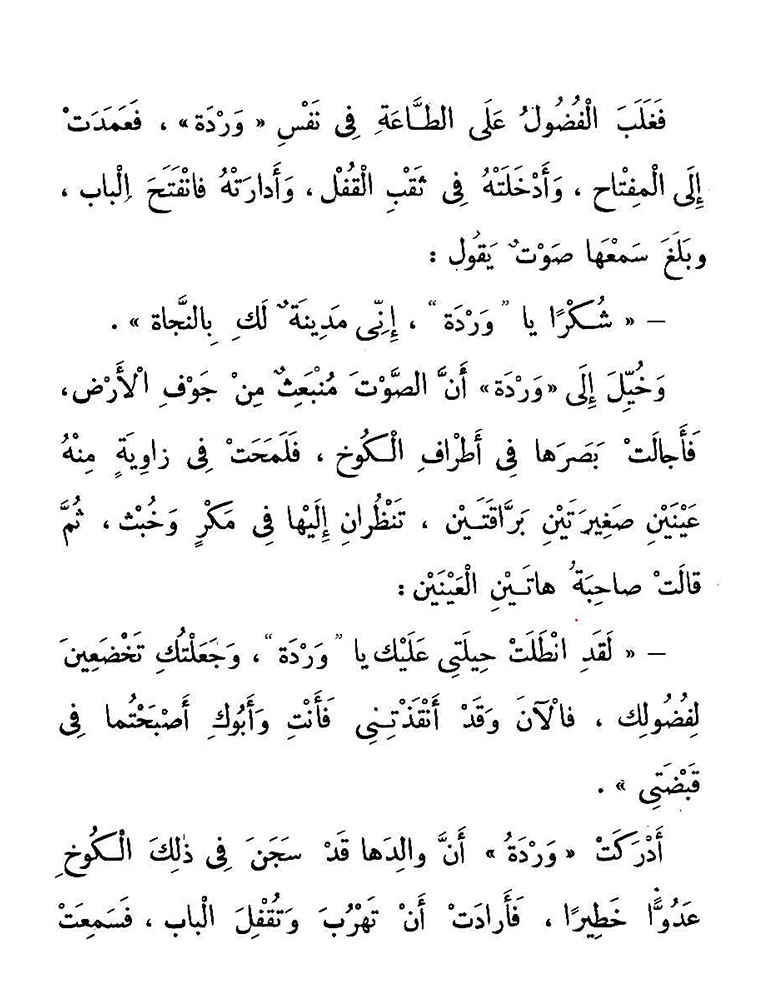 فَغَلَبَ الْفُضُولُ عَلَى الطَّاعَةِ فِى نَفْسِ « وَرْدَة » ، فَعَمَدَتْ
إِلَى الْمِفْتاح ، وَأَدْخَلَتْهُ فِى ثَقْبِ الْقُفْل ، وَأَدارَتْهُ فانْفَتَحَ الْباب ،
وبَلَغَ سَمْعَهَا صَوْتٌ يَقُول :
– « شُكْرًا يا " وَرْدَة " ، إِنِّى مَدِينَةٌ لَكِ بِالنَّجاة » .
وَخُيِّلَ إِلَى « وَرْدَة » أَنَّ الصَّوْتَ مُنْبَعِثٌ مِنْ جَوْفِ الْأَرْض ،
فَأَجالَتْ بَصَرَها فِى أَطْرافِ الْكُوخ ، فَلَمَحَتْ فِى زاوِيَةٍ مِنْهُ
عَيْنَيْنِ صَغِيرَتَيْنِ بَرَّاقَتَيْن ، تَنْظُرانِ إِلَيْها فِى مَكْرٍ وَخُبْث ، ثُمَّ
قالَتْ صاحِبَةُ هاتَيْنِ الْعَيْنَيْن :
– « لَقَدِ انْطَلَتْ حِيلَتِى عَلَيْك يا " وَرْدَة " ، وَجَعَلْتُكِ تَخْضَعِينَ
لِفُضُولِك ، فالْآنَ وَقَدْ أَنْقَذْتِنِى فَأَنْتِ وَأَبُوكِ أَصْبَحْتُما فِى
قَبْضَتِى » .
أَدْرَكَتْ « وَرْدَةُ » أَنَّ والِدَها قَدْ سَجَنَ فِى ذٰلِكَ الْكُوخِ
عَدُوًّا خَطِيرًا ، فَأَرادَتْ أَنْ تَهْرُبَ وَتُقْفِلَ الْباب ، فَسَمِعَتْ